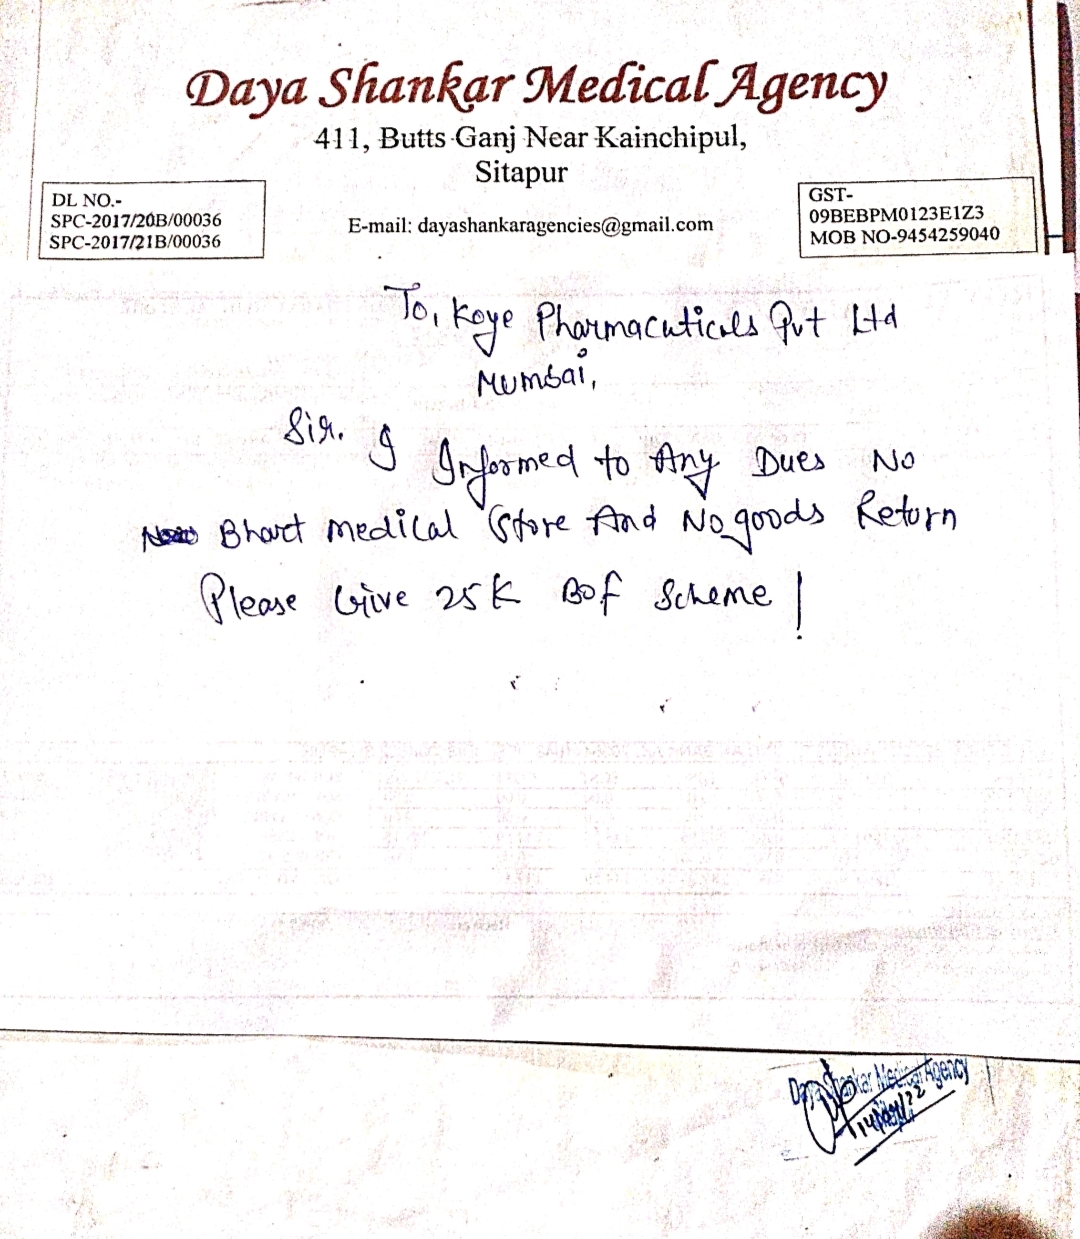 Daya Shankar Medical Agency
411, Butts Ganj Near Kainchipul,
Sitapur
DL NO.-
SPC-2017/20B/00036
SPC-2017/21B/00036
E-mail: dayashankaragencies@gmail.com
GST-
09BEBPM0123E1Z3
MOB NO-9454259040
To, Koye Pharmacuticals Pvt Ltd
Mumbai,
Sir. I Informed to Any Dues No
Bhart Medical Store And No goods Return
Please Give 25K Bof Scheme !
Daya Shankar Medical Agency